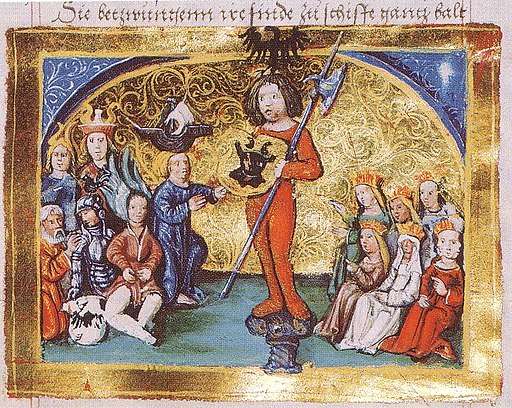 Sie betzwungenn ire finde zu schiffe gantz balt